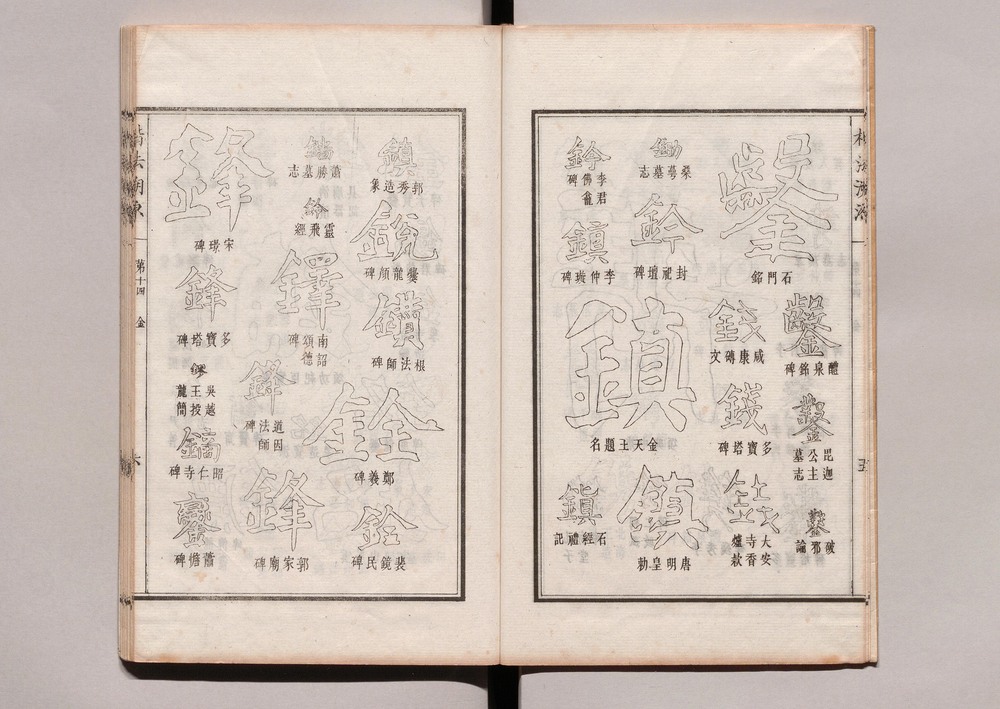 鑿
石門銘
鑿
醴泉銘碑
鑿
毘迦
公主墓志
鑿
破邪論
鋤
桑蕚墓志
鈐
封祀壇碑
錢
咸康磚文
錢
多寶塔碑
錢
大安
寺香
爐款
鈐
李君
佛龕
碑
鎮
李仲璇碑
鎮
金天王題名
鎮
唐明皇勅
鎮
石經禮記
鎮
郭秀造象
銳
爨龍顏碑
鑽
根法師碑
銓
鄭義碑
銓
裴鏡民碑
蕭勝墓志
鈴
靈飛經
鐸
南詔
德頌
碑
鋒
道因
法師
碑
鋒
郭家廟碑
鋒
宋璟碑
鋒
多寶塔碑
鏐
吳越
王投
龍簡
鏑
昭仁寺碑
蕭憺碑
楷法溯源
第十四
金
六